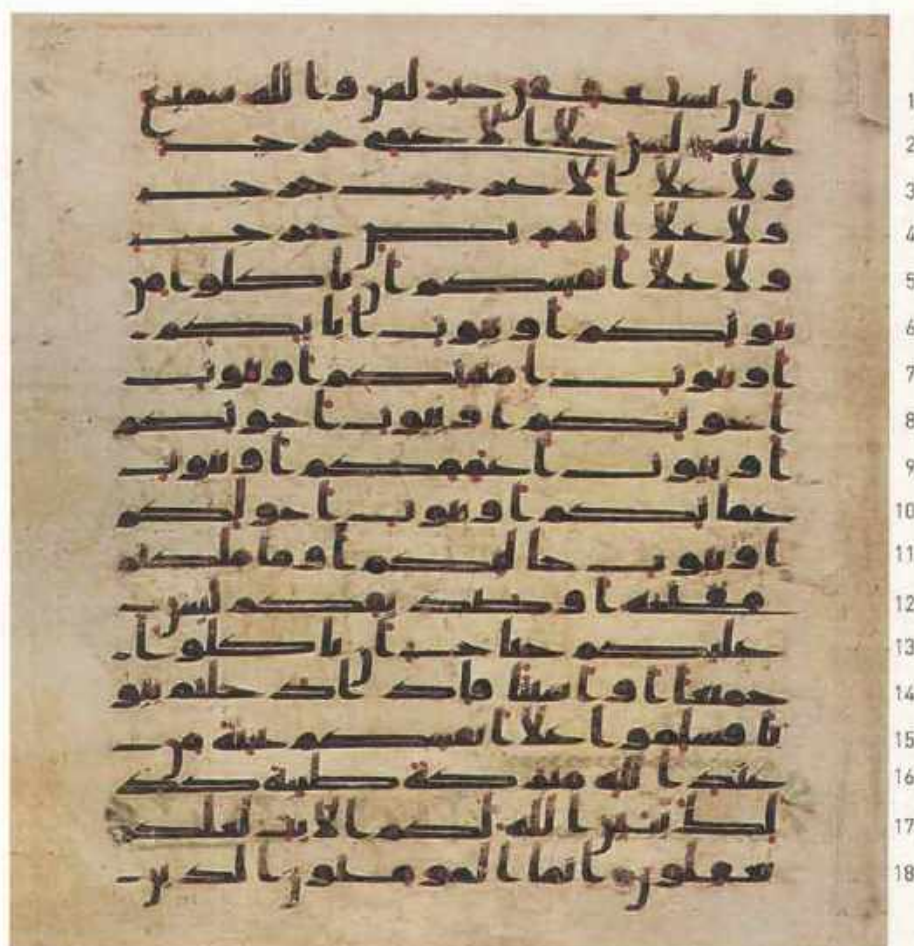 1 وان يستعففن خير لهن والله سميع
2 عليم ليس علا الاعمى حرج
3 ولا علا الاعرج حرج
4 ولا علا المريض حرج
5 ولا علا انفسكم ان تاكلوا من
6 بيوتكم او بيوت ابايكم
7 او بيوت امهتكم او بيوت
8 اخونكم او بيوت اخوتكم
9 او بيوت اعممكم او بيوت
10 عماتكم او بيوت اخولكم
11 او بيوت خالتكم او ما ملكتم
12 مفتحه او صديقكم ليس
13 عليكم جناح ان تاكلوا
14 جميعا او اشتتا فاذا دخلتم بيو
15 تا فسلموا علا انفسكم تحية من
16 عند الله مبركة طيبة كذ
17 لك يبين الله لكم الايت لعلكم
18 تعقلون انما المومنون الذين